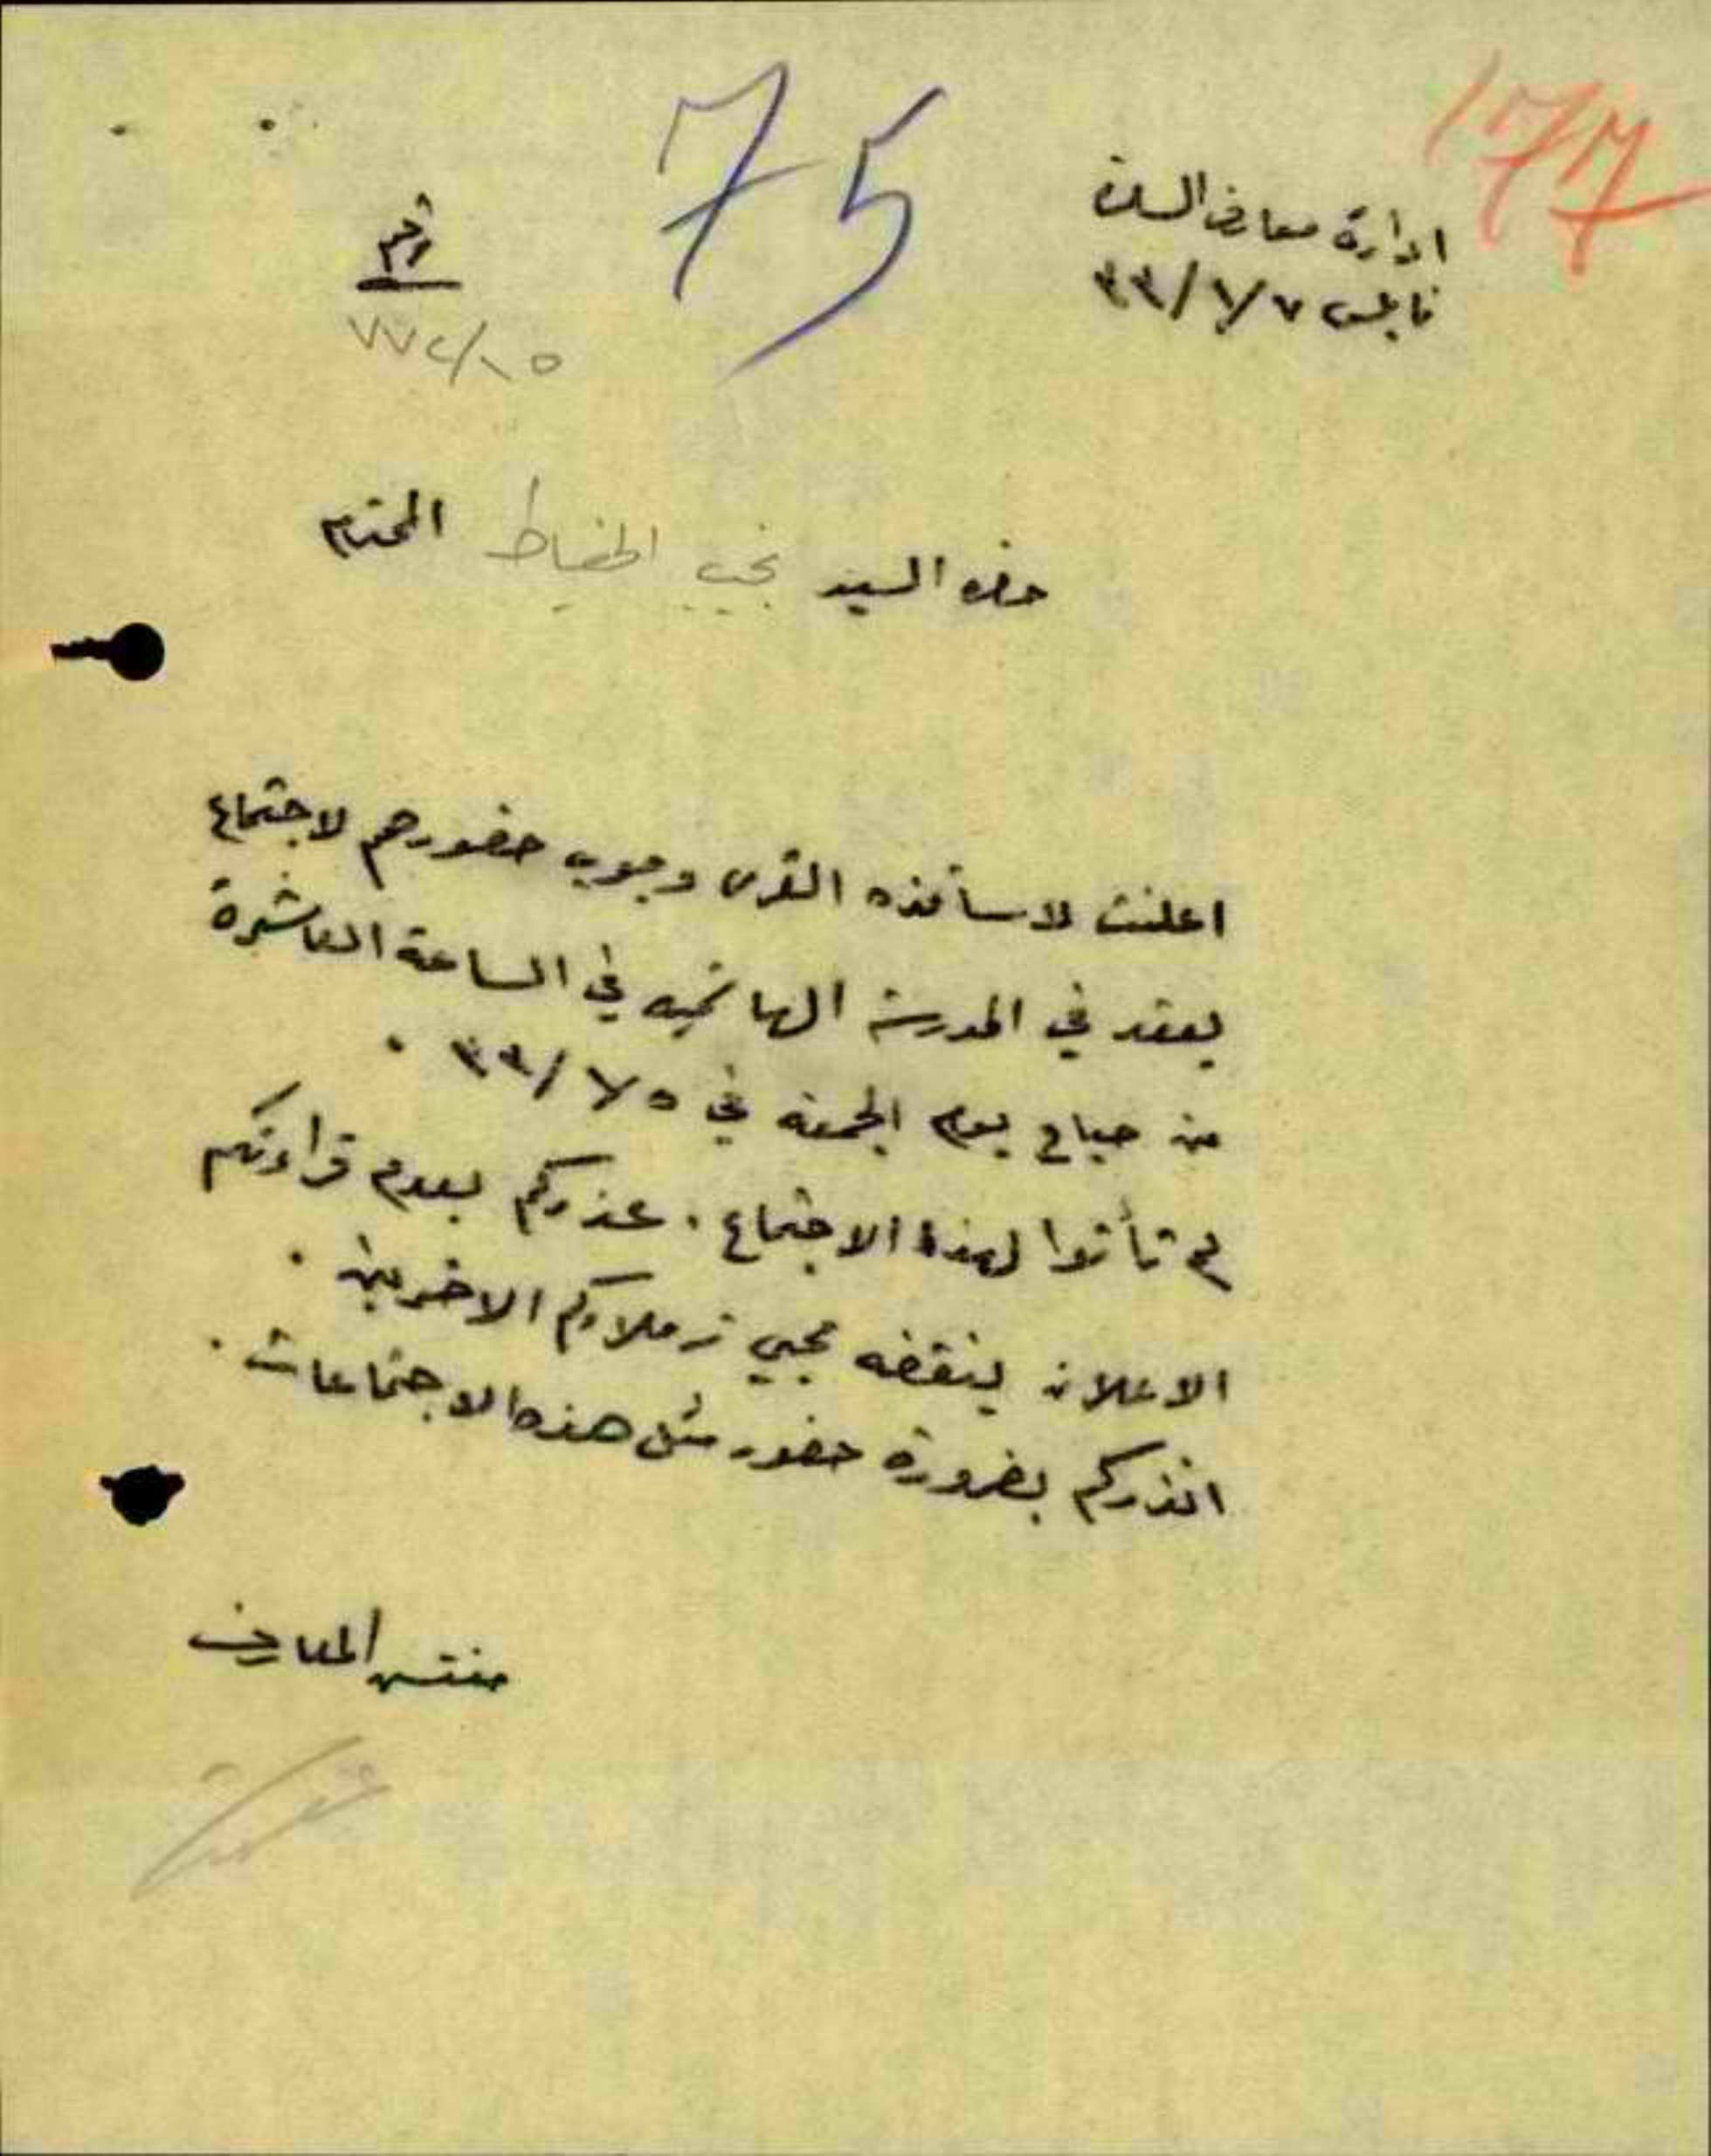 177
75
ادارة معارف السلة
نابلس ٧/٧/٣٣
رقم
٧٧٤/١٥
حضرة السيد نجيب الخياط المحترم
اعلنت لاساتذه القرى وجوب حضورهم لاجتماع
يعقد في المدرسة الهاشميه في الساعة العاشرة
من صباح يوم الجمعه في ٣٣/٧/٥ .
لم تأتوا لهذا الاجتماع . عذركم بعدم قراءتكم
الاعلان ينقضه مجيئ زملاؤكم الاخرين .
انذركم بضرورة حضور مثل هذه الاجتماعات .
مفتش المعارف